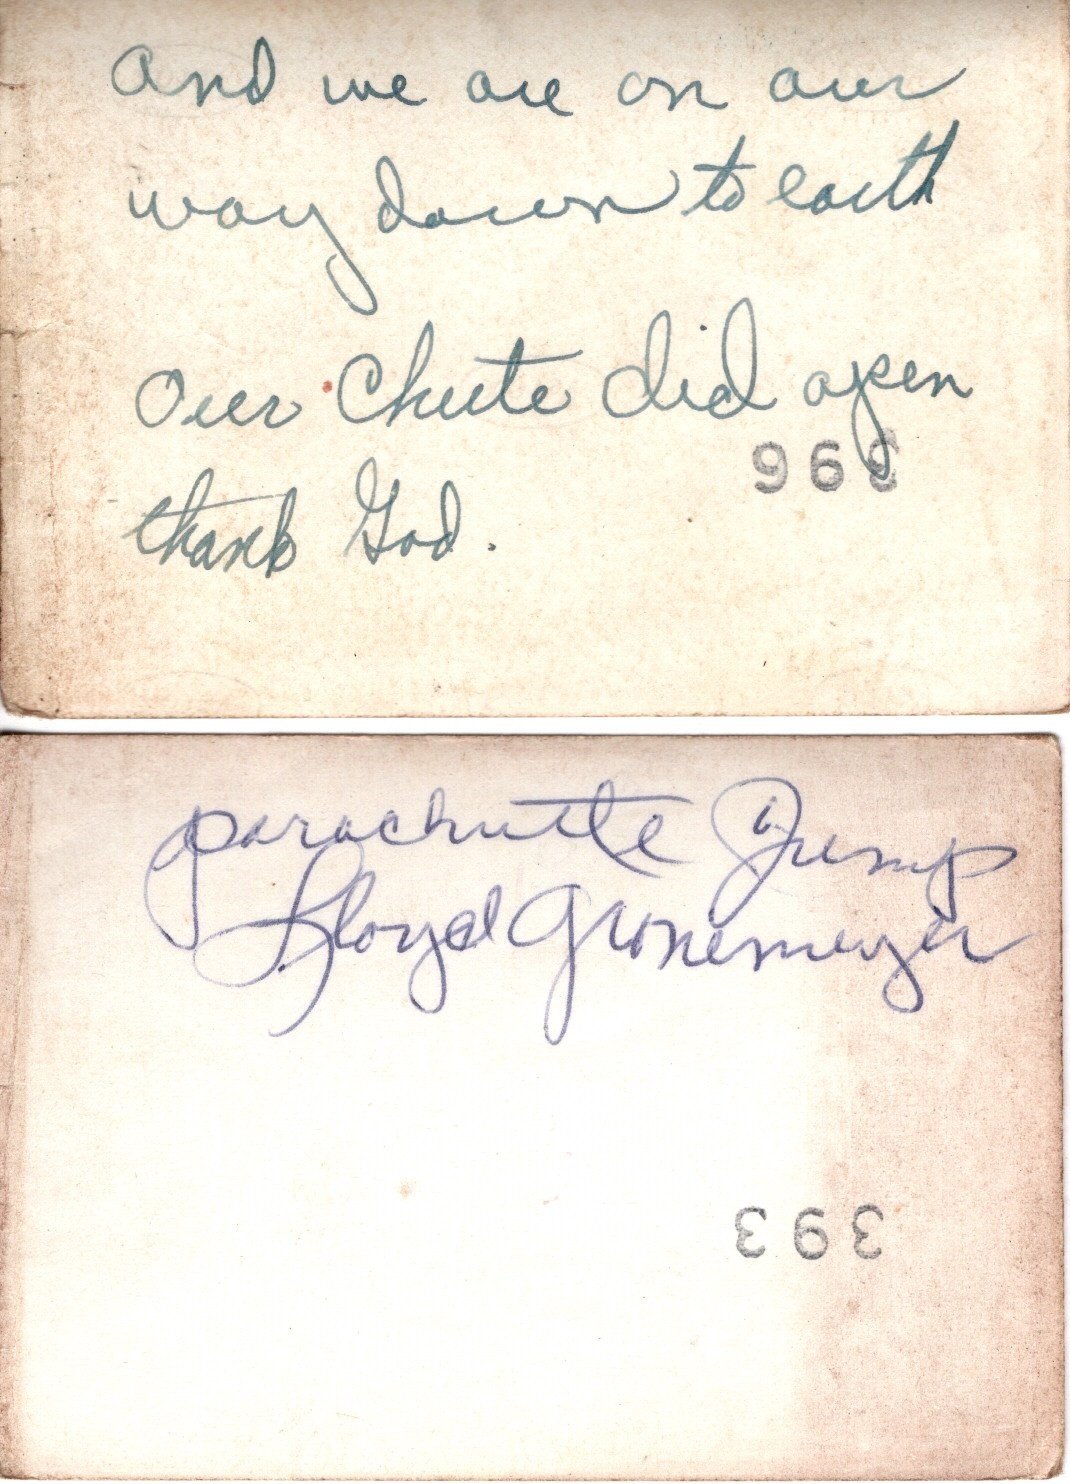 And we are on our
way down to earth
Our Chute did open
396
thank God.
parachutte Jump
Lloyd Gronemeyer
393